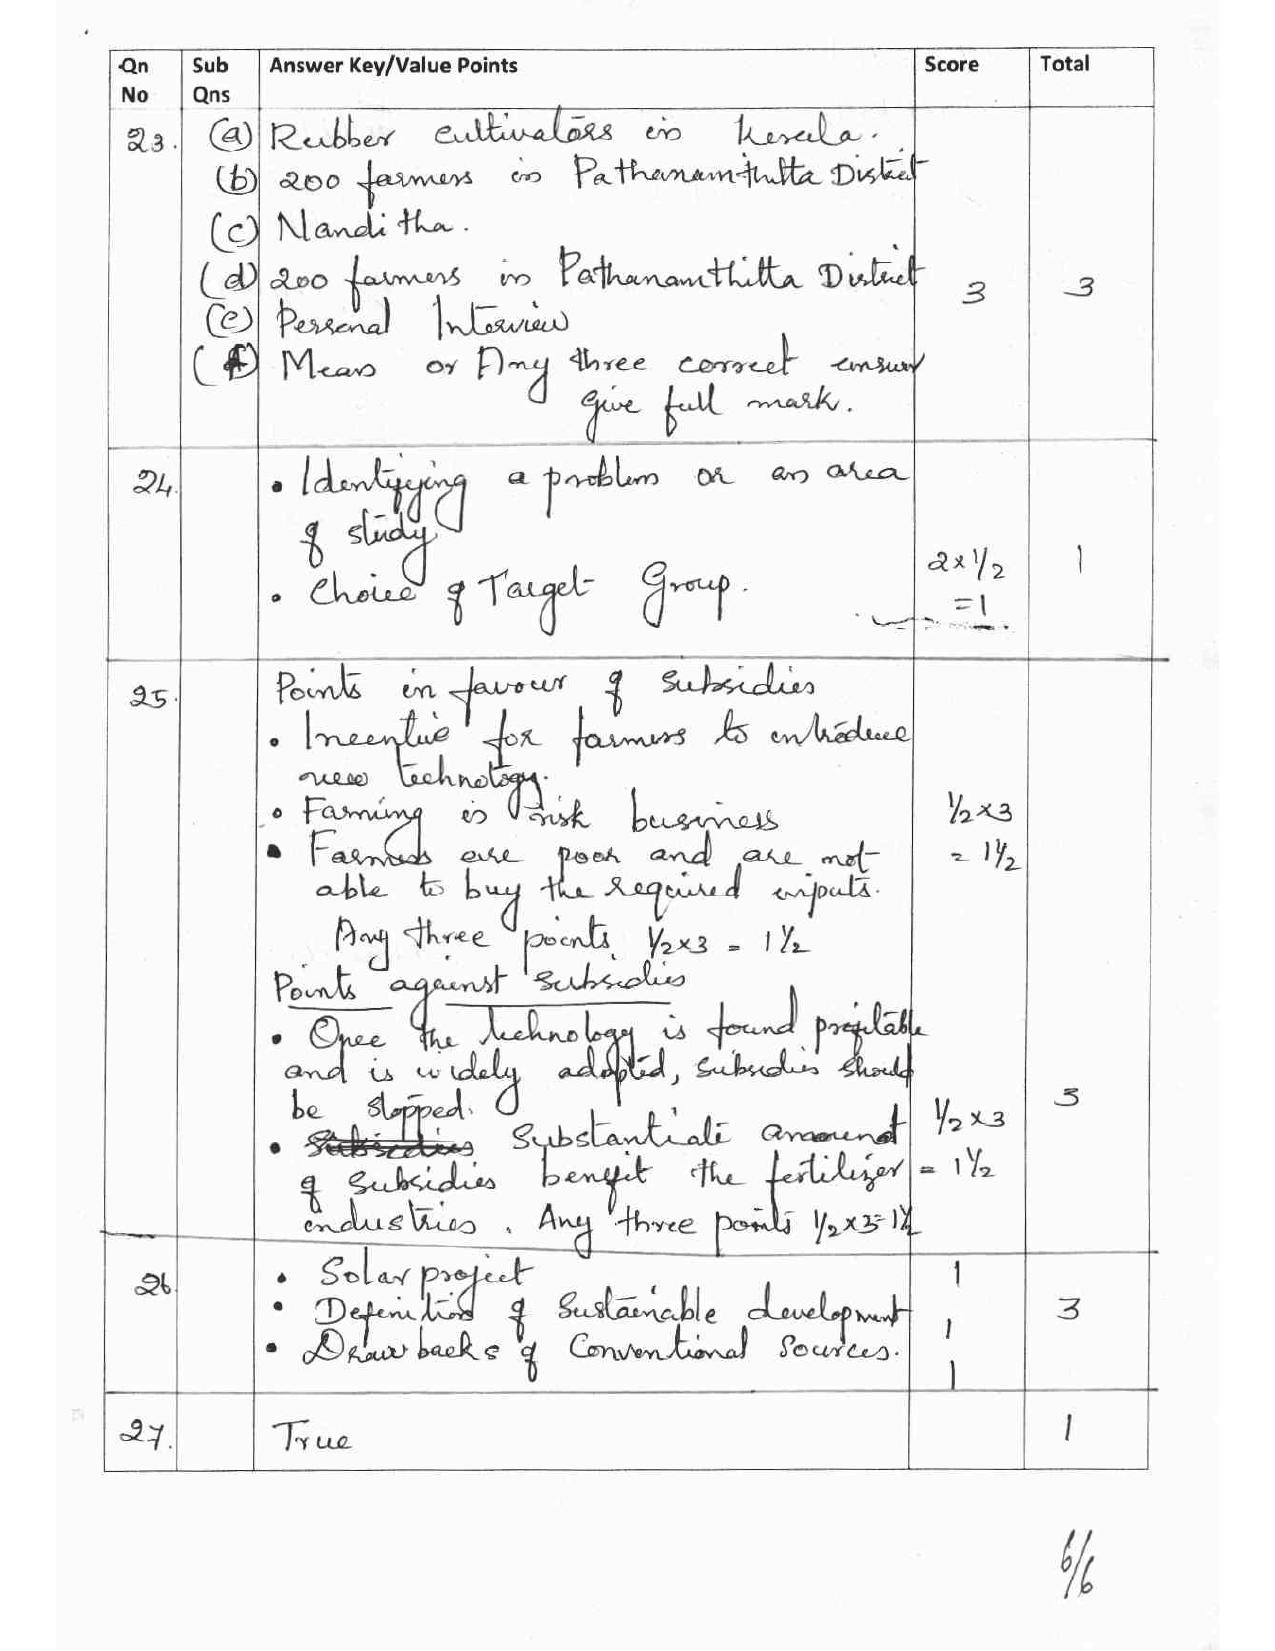 Qn No Sub Qns Answer Key/Value Points Score Total
23. (a) Rubber cultivators in Kerala.
(b) 200 farmers in Pathanamthitta District
(c) Nanditha.
(d) 200 farmers in Pathanamthitta District 3 3
(e) Personal Interview
(f) Mean or Any three correct answer
give full mark.
24. • Identifying a problem or an area
of study
2 x 1/2 1
• Choice of Target Group.
=1
25. Points in favour of Subsidies
• Incentive for farmers to introduce
new technology.
• Farming is risk business 1/2 x 3
• Farmers are poor and are not = 1 1/2
able to buy the required inputs.
Any three points 1/2 x 3 = 1 1/2
Points against Subsidies
• Once the technology is found profitable
and is widely adopted, subsidies should
be stopped. 3
• Substantial amount 1/2 x 3
of Subsidies benefit the fertilizer = 1 1/2
industries. Any three points 1/2 x 3 = 1 1/2
26 • Solar project 1
• Definition of Sustainable development 1 3
• Drawbacks of Conventional Sources. 1
27. True 1
6/6